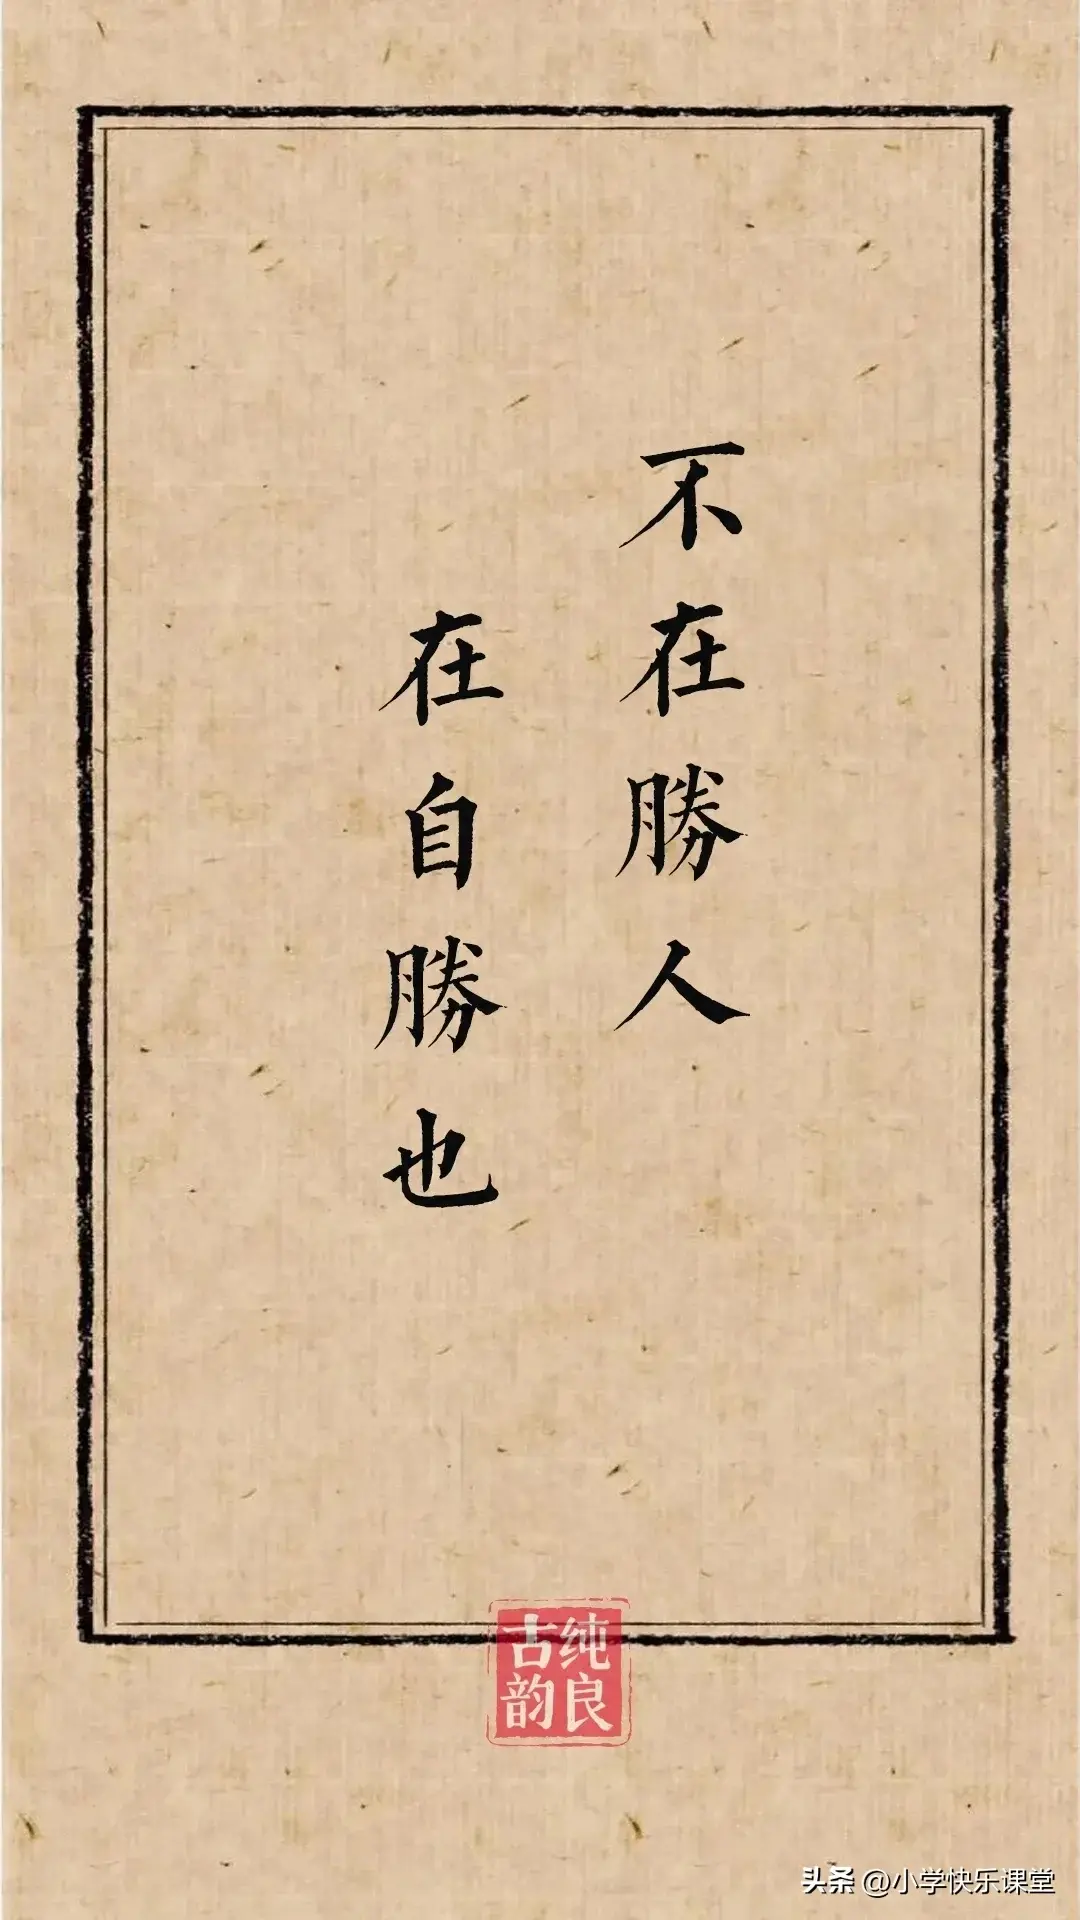 不在勝人
在自勝也
纯良
古韵
头条 @小学快乐课堂